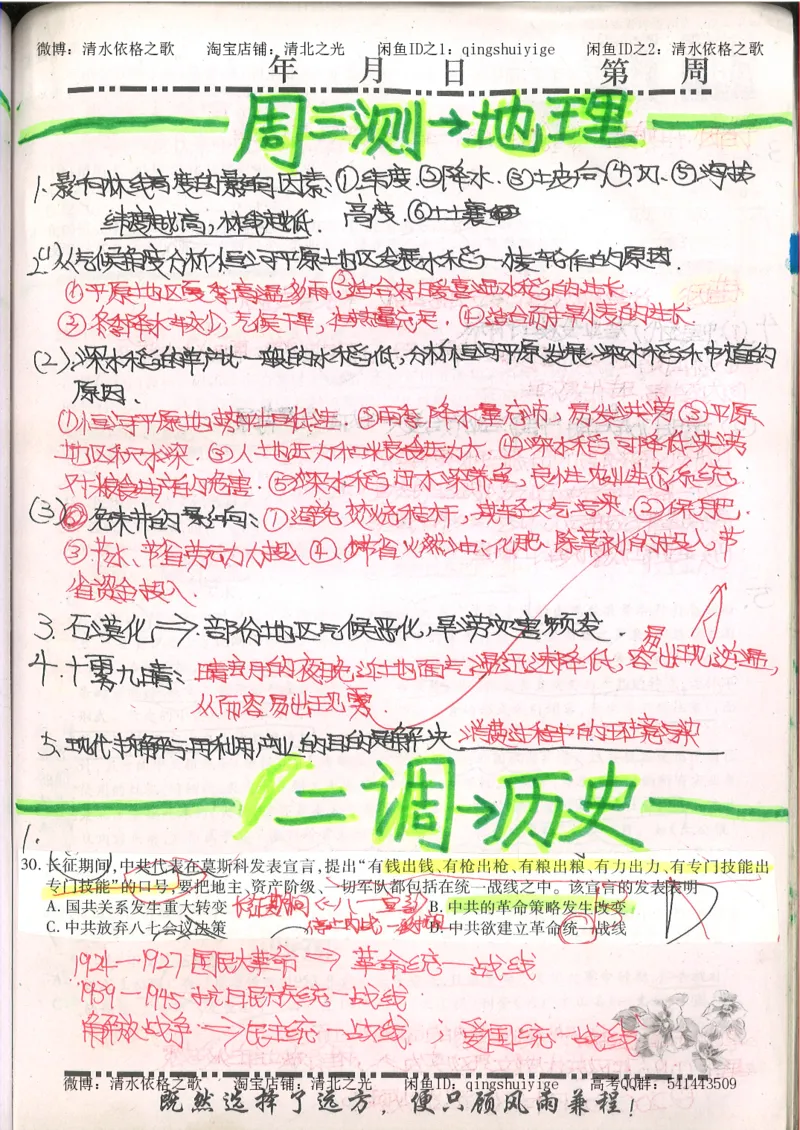 微博：清水依格之歌 淘宝店铺：清北之光 闲鱼ID之1：qingshuiyige 闲鱼ID之2：清水依格之歌
年 月 日 第 周
周三测→地理
1.影响林线高度的影响因素：①纬度.②降水.③坡向④风.⑤海拔
纬度越高，林线越低. 高度.⑥土壤
2.(1)从气候角度分析恒河平原地区发展水稻—小麦轮作的原因.
①平原地区夏季高温多雨，②适合好暖喜湿水稻的生长
③冬季降水较少，气候干旱，但热量充足.④适合耐旱小麦的生长
(2).深水稻的单产比一般的水稻低，分析恒河平原发展深水稻种植的
原因.
①恒河平原地势平坦低洼.②雨季降水量充沛，易发洪涝③平原
地区积水深.③人土地压力和粮食压力大.④深水稻可降低洪涝
对粮食生产的危害.⑤深水稻田水深
(3)免耕的影响：①避免焚烧秸秆，减轻大气污染.②保肥.
③节水、节省劳动力投入④.节省燃油、化肥、除草剂的投入，节
省资金投入.
3.石漠化⇒部分地区气候恶化，旱涝灾害频发.
易
4.十雾九晴：晴朗的夜晚近地面气温迅速降低，容出现逆温，
从而容易出现雾.
5.现代 利用产业的目的是解决 消费过程中的环境污染
二调→历史
1.
30.长征期间，中共代表在莫斯科发表宣言，提出“有钱出钱、有枪出枪、有粮出粮、有力出力、有专门技能出
专门技能”的口号，要把地主、资产阶级、一切军队都包括在统一战线之中。该宣言的发表表明
A.国共关系发生重大转变 长征期间←八一宣言 B.中共的革命策略发生改变 D
C.中共放弃八七会议决策 停止内战一致对 D.中共欲建立革命统一战线
1924—1927国民大革命⇒革命统一战线
1939—1945抗日民族统一战线
解放战争→民主统一战线；爱国统一战线
微博：清水依格之歌 淘宝店铺：清北之光 闲鱼ID：qingshuiyige 高考QQ群：541443509
既然选择了远方，便只顾风雨兼程！